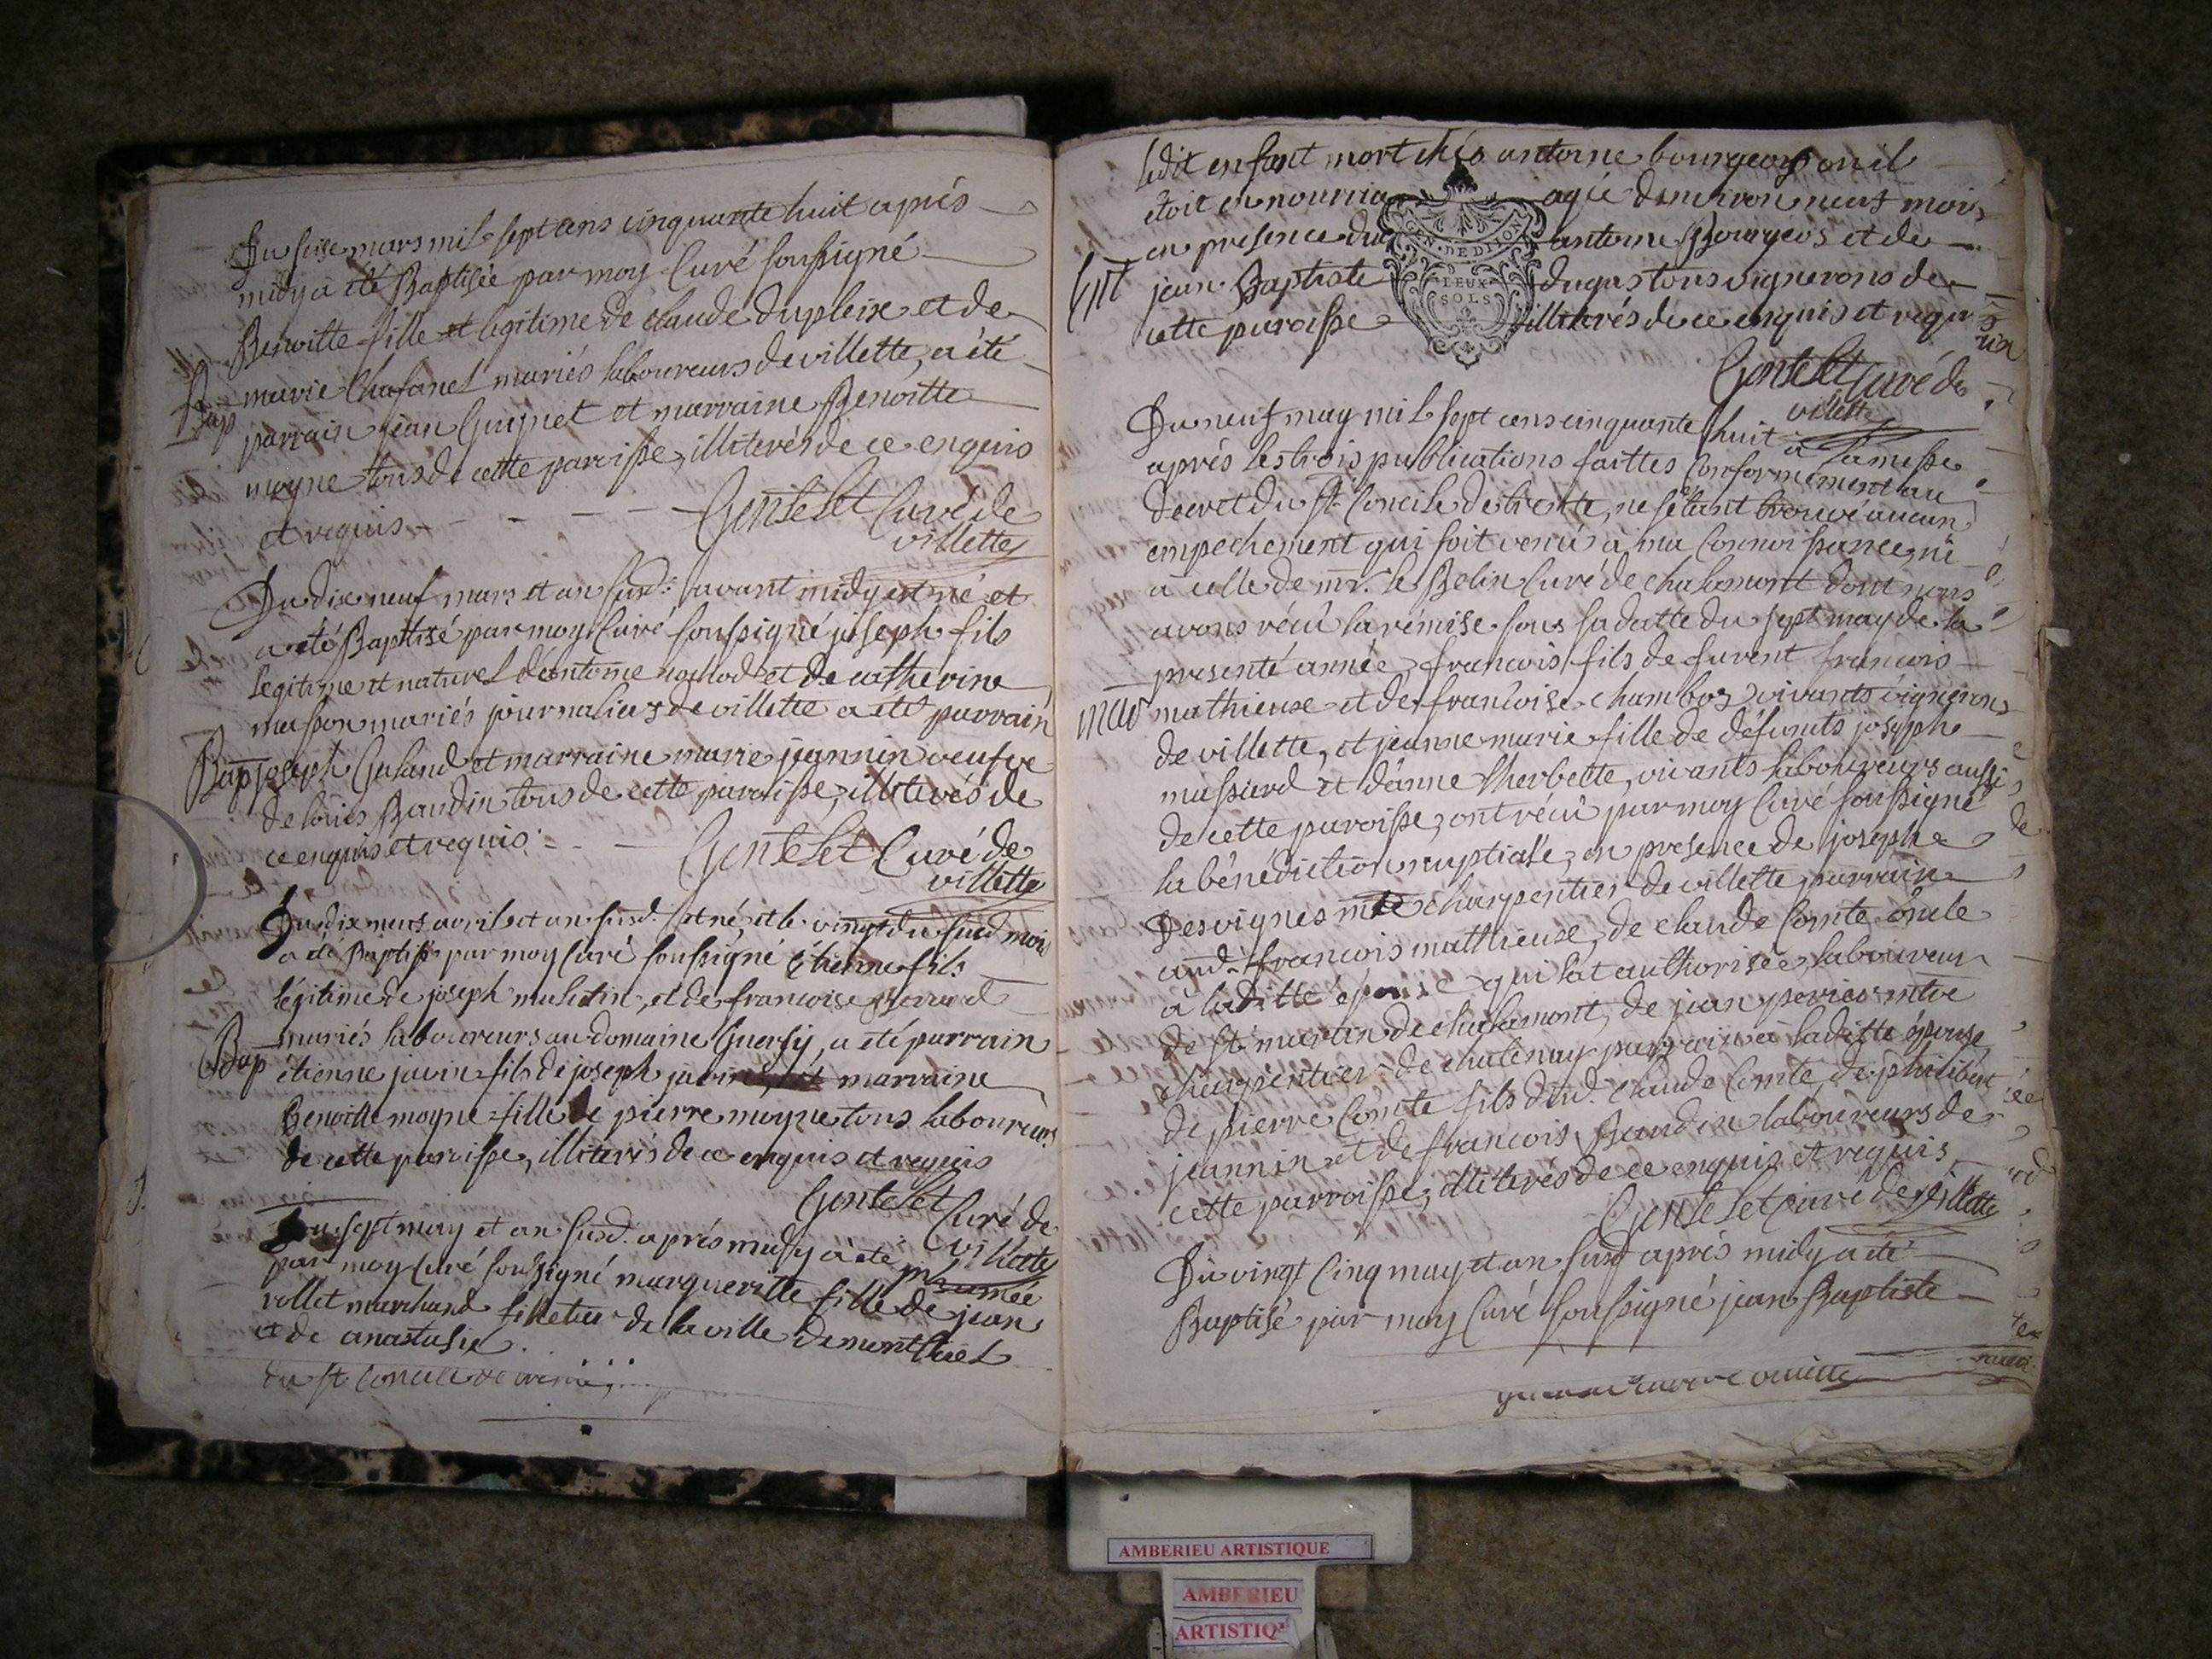 Du seise mars mil sept cens cinquante huit après
midy à été Baptisée par moy Curé soussigné
Benoitte fille et legitime de claude dupleix et de
marie Chafanel mariés laboureurs de villette, a été
Bap
parrain jean Guignet et marraine Benoitte
moyne tous de cette paroisse, illiterés de ce enquis
et requis
Gontelet Curé de
villette
Du dix neuf mars et an susd. avant midy est né et
a été Baptisé par moy Curé soussigné joseph fils
legitime et naturel d'antoine et de catherine
masson mariés journaliers de villette a été parrain
Bap
joseph Galand et marraine marie jeannin veufve
de louis Baudin tous de cette paroisse, illiterés de
ce enquis et requis
Gontelet Curé de
villette
Du dix neuf avril et an susd. est né, et le vingt du susd. mois
a été Baptisé par moy Curé soussigné étienne fils
légitime de joseph mulatin, et de francoise
mariés laboureurs au domaine Guerfy, a été parrain
Bap
étienne javin fils de joseph javin, marraine
Benoitte moyne fille de pierre moyne tous laboureurs
de cette paroisse, illiterés de ce enquis et requis
Gontelet Curé de
villette
Du sept may et an susd. après midy à été inhumée
par moy Curé soussigné marguerite fille de jean
rollet marchand filletier de la ville de montluel
et de anastasie
du st. Concile de
ledit enfant mort chés antoine bourgeois ou il
étoit en nourrice agée d'environ neuf mois
en presence dud. antoine Bourgeois et de
Ent
jean Baptiste dugas tous vignerons de
cette paroisse illiterés de ce enquis et requis
GEN. DE DIJON
DEUX
SOLS
Gontelet Curé de
villette
Du neuf may mil sept cens cinquante huit à la messe
après les trois publications faittes Conformement au
decret du St. Concile de trente, ne s'étant trouvé aucun
empechement qui soit venû à ma Connoissance, ni
à celle de mr. le Belin Curé de chalamont dont nous
avons réçû la rémise sous sa datte du sept may de la
presente année, francois fils de francois
mar
mathieuse et de francoise chamboz vivants vignerons
de villette, et jeanne marie fille de défunts joseph
massiard et d'anne therbette, vivants laboureurs aussi
de cette paroisse, ont réçû par moy Curé soussigné
la bénédiction nuptiale, en presence de joseph
Desvignes mtre charpentier de villette parrain
aud. francois mathieuse, de claude Comte oncle
à laditte épouse qui l'at authorisée, laboureur
de St. martin de chalamont, de jean perier mtre
charpentier de chatenay parrain à laditte épouse
de pierre Comte fils dud. claude Comte de philibert
jeannin et de francois Baudin laboureurs de
cette parroisse, illiterés de ce enquis et requis
Gontelet curé de villette
Du vingt Cinq may et an susd après midy a été
Baptisé par moy Curé soussigné jean Baptiste
AMBERIEU ARTISTIQUE
AMBERIEU
ARTISTIQ